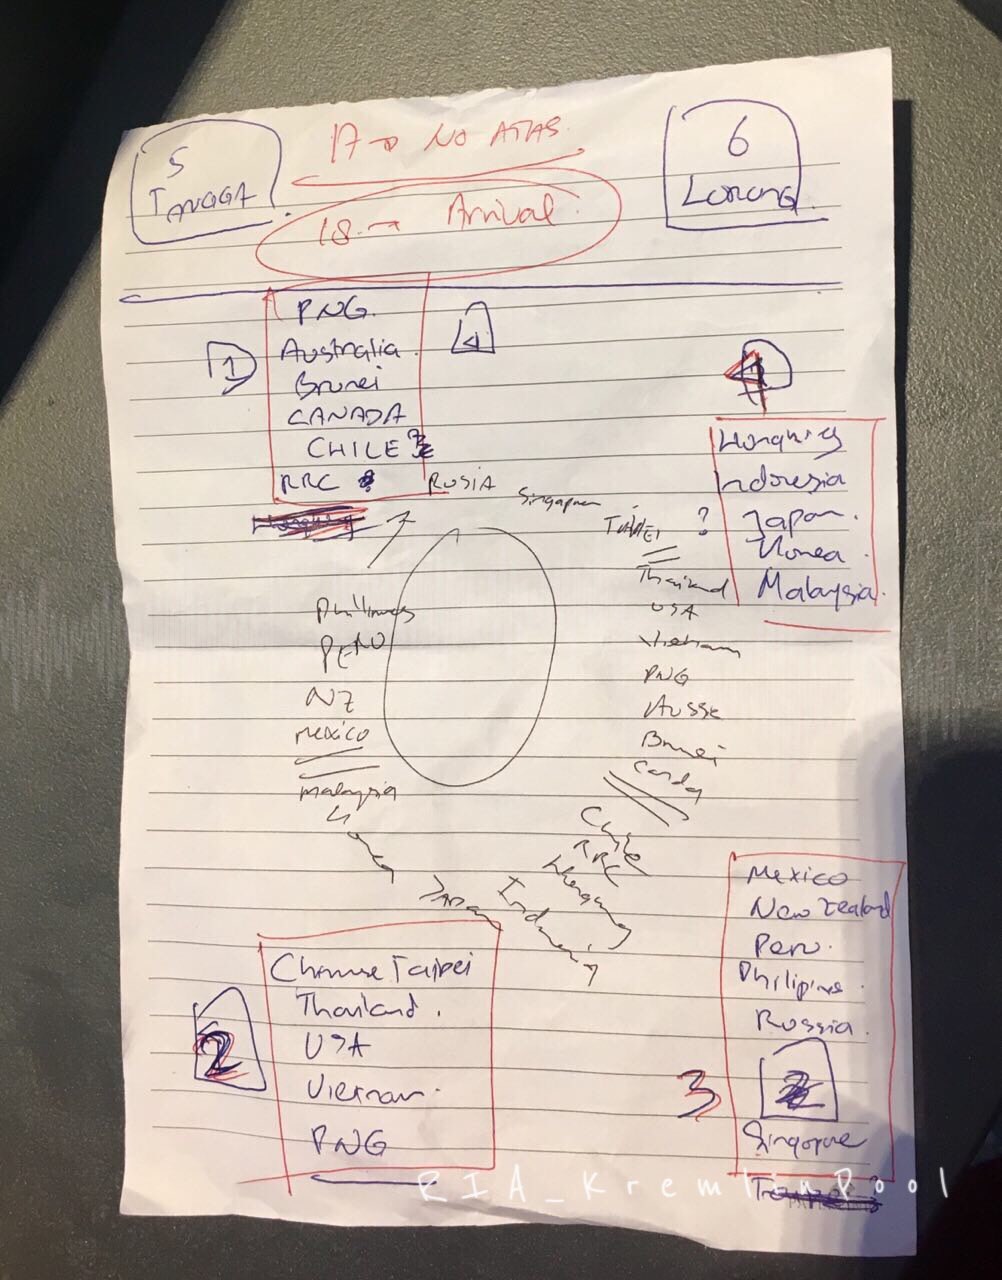 5
TANGGA
17 → NO ATAS
6
LORONG
18 → Arrival
PNG
Australia
Brunei
CANADA
CHILE
RRC
1
4
RUSIA
Singapore
TAIPEI ?
Thailand
USA
Vietnam
PNG
Ausse
Brunei
Canda
Chile
RRC
Indonesia
Japan
Korea
Malaysia
Mexico
NZ
PERU
Phillines
Hongkong
Indoresia
Japan.
Korea.
Malaysia.
2
Chinese Taipei
Thailand.
USA
Vietnam.
PNG
3
Mexico
New Zealand
Peru.
Philipine.
Russia.
Singapore
RIA_KremlinPool